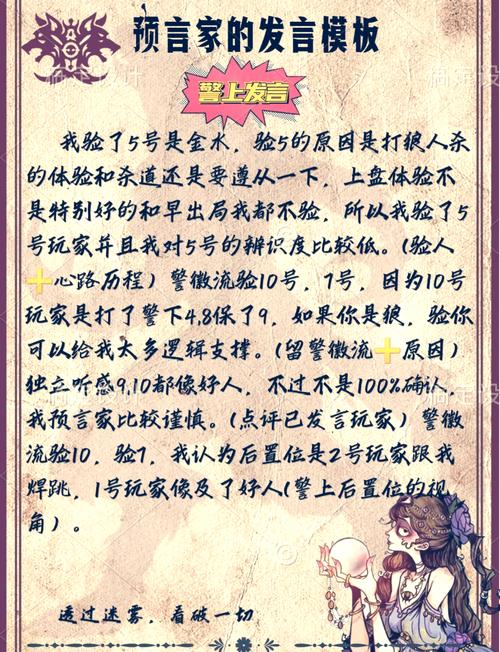 预言家的发言模板
警上发言
我验了5号是金水，验5的原因是打狼人杀
的体验和杀道还是要遵从一下，上盘体验不
是特别好的和早出局我都不验，所以我验了5
号玩家并且我对5号的辨识度比较低。（验人
➕心路历程）警徽流验10号，7号，因为10号
玩家是打了警下4,8保了9，如果你是狼，验你
可以给我太多逻辑支撑。（留警徽流➕原因）
独立听感9,10都像好人，不过不是100%确认，
我预言家比较谨慎。（点评已发言玩家）警徽
流验10，验7，我认为后置位是2号玩家跟我
焊跳，1号玩家像及了好人(警上后置位的视
角）。
透过迷雾，看破一切